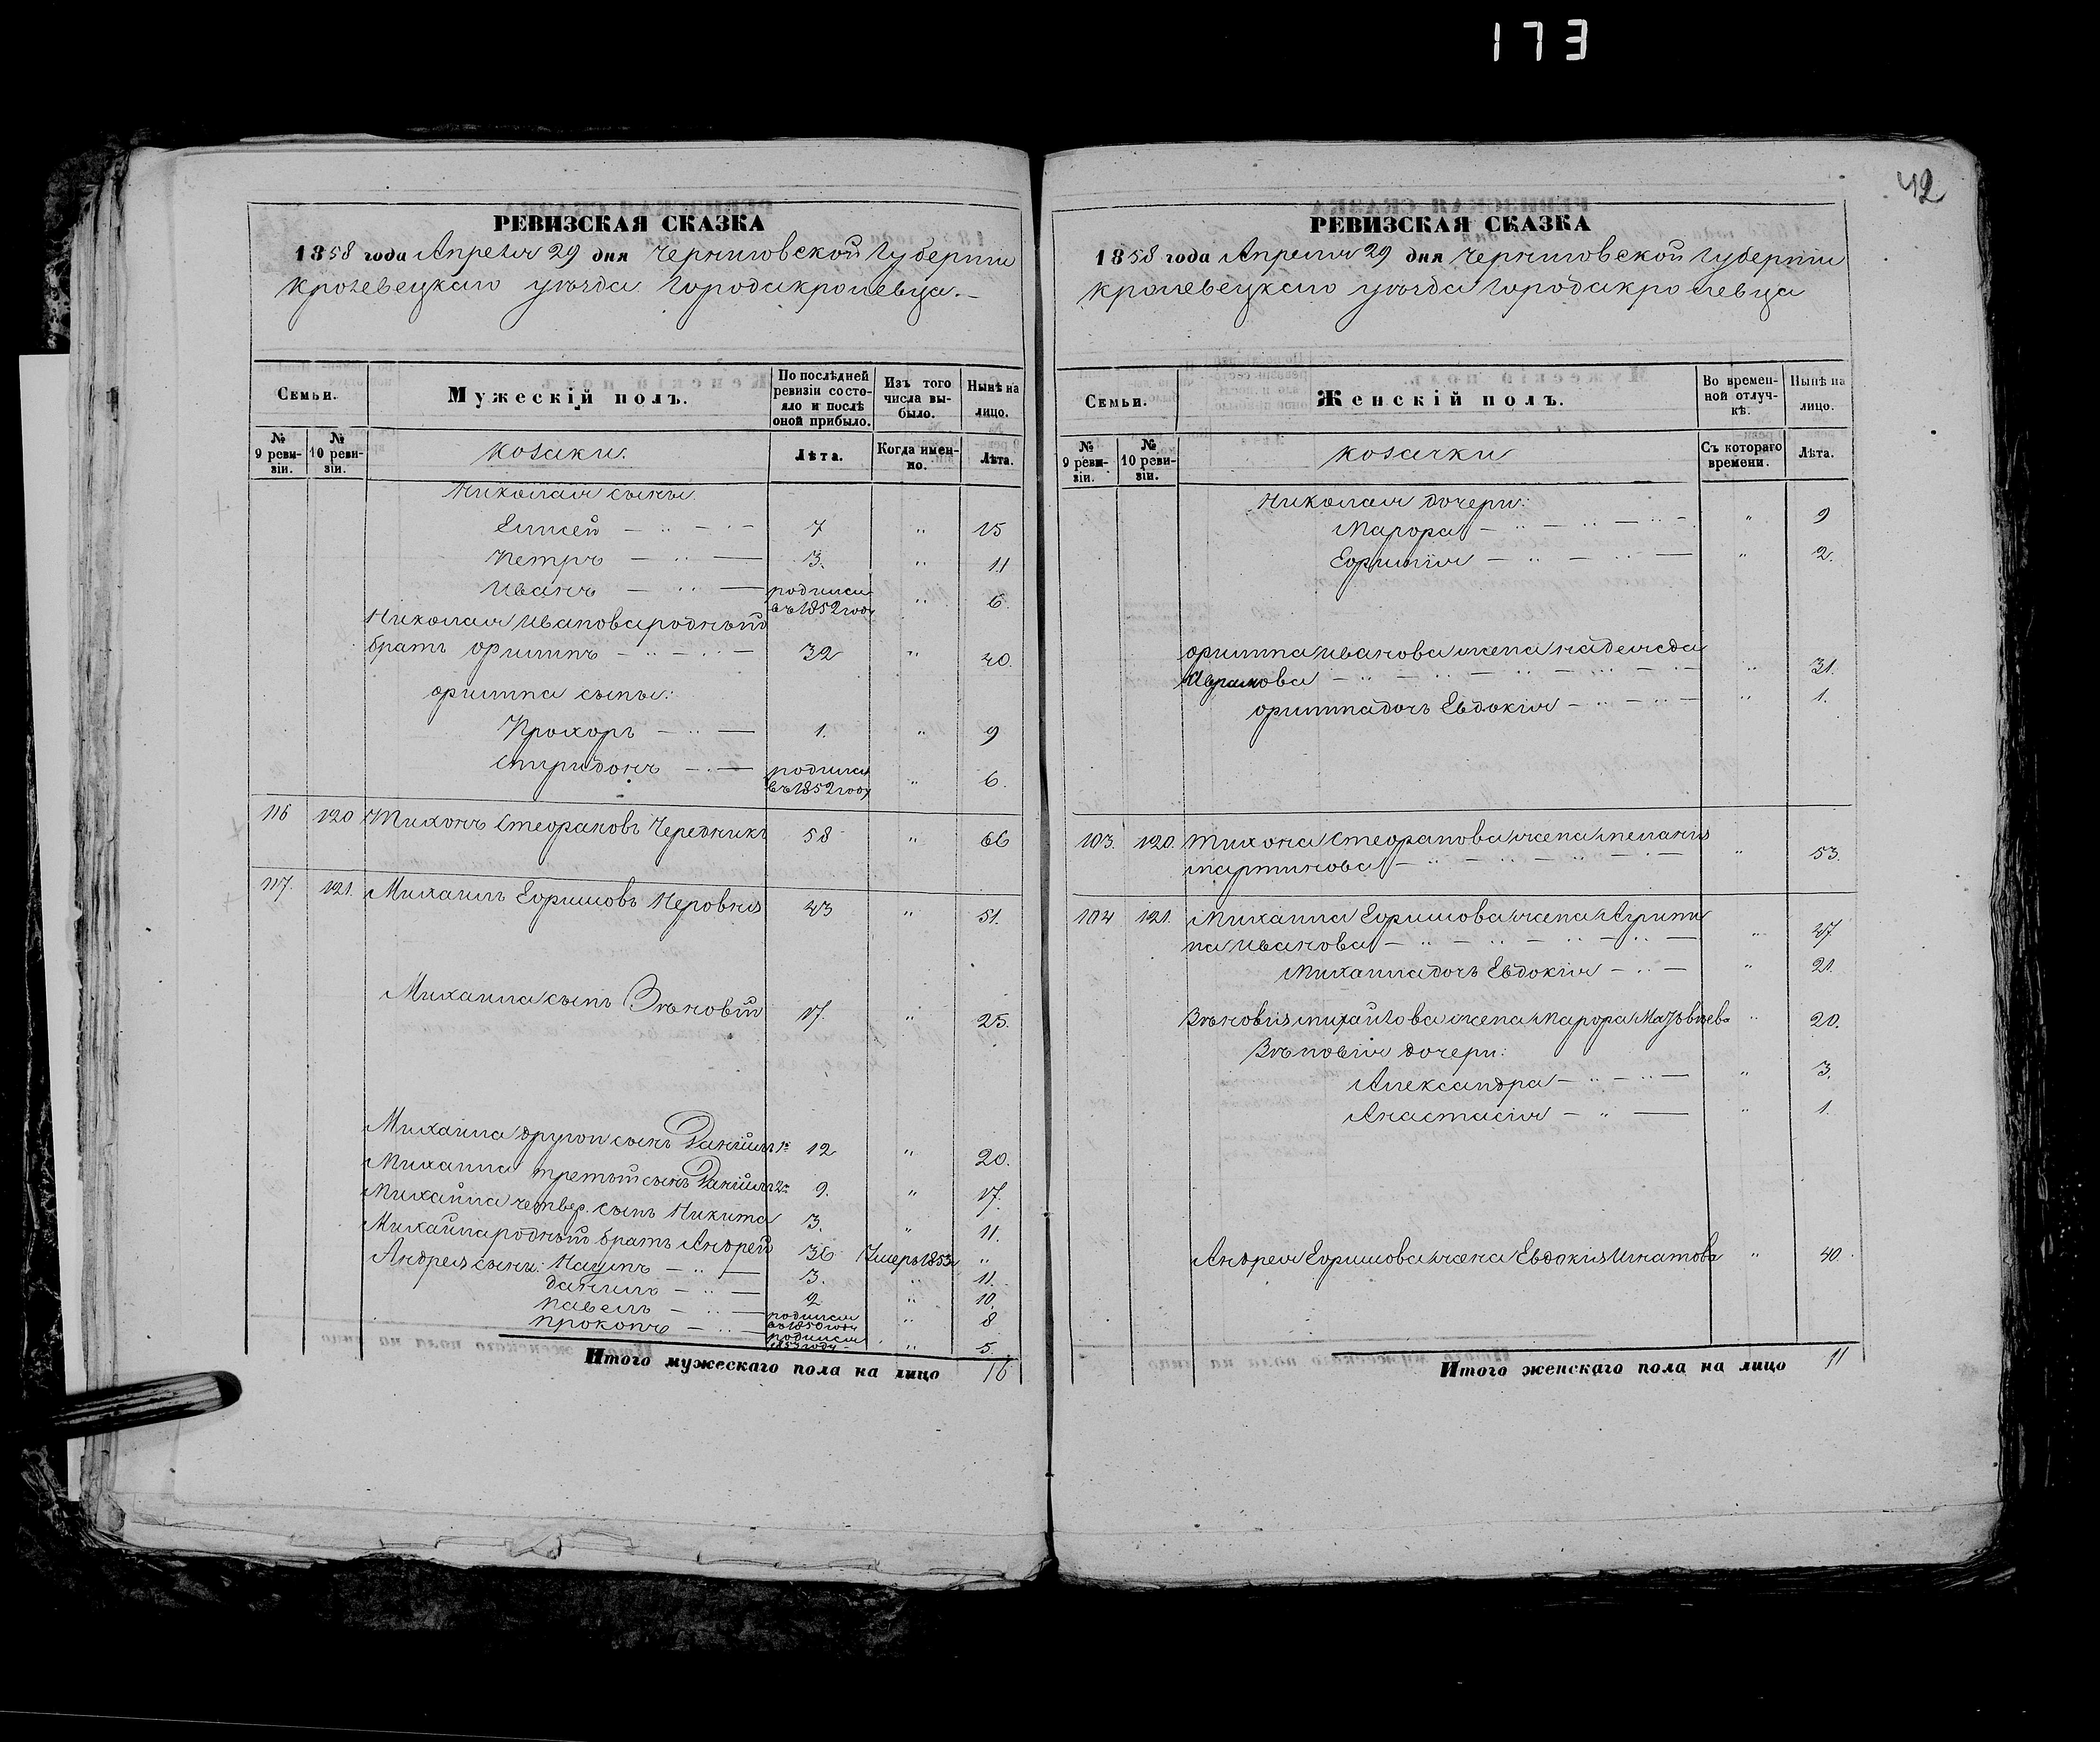 173
42
РЕВИЗСКАЯ СКАЗКА
1858 года Апреля 29 дня Черниговской Губернии
Кролевецкаго уезда Города Кролевца.
Семьи.
Мужескій полъ.
По послѣдней ревизіи состояло и послѣ оной прибыло.
Изъ того числа выбыло.
Нынѣ на лицо.
№ 9 ревизіи.
№ 10 ревизіи.
Козаки.
Лѣта.
Когда именно.
Лѣта.
Николая сыны:
Елисей 7 " 15
Петръ 3. " 11
Иванъ родился въ 1852 году " 6.
Николая Иванова родный
братъ Филипъ 32 " 40.
Филипа сыны:
Прохоръ 1. " 9
Спиридонъ родился въ 1852 году " 6.
116 120 Тихонъ Стефановъ Чередникъ 58 " 66
117. 121. Михаилъ Ефимовъ 43 " 51.
Михаила сынъ Зѣновій 17. " 25.
Михаила другой сынъ Даніилъ 1й 12 " 20.
Михаила третій сынъ Даніилъ 2й 9. " 17.
Михайла четвер. сынъ Никита 3. " 11.
Михайла родный братъ Андрей 36 Умеръ 1853 "
Андрея сыны: Наумъ 3. " 11.
Данило 2 " 10.
Павелъ родился въ 1850 году " 8
Прокопъ родился 1853 году " 5.
Итого мужескаго пола на лицо 16
РЕВИЗСКАЯ СКАЗКА
1858 года Апреля 29 дня Черниговской Губернии
Кролевецкаго уезда Города Кролевца
Семьи.
Женскій полъ.
Во временной отлучкѣ.
Нынѣ на лицо.
№ 9 ревизіи.
№ 10 ревизіи.
Козачки
Съ котораго времени.
Лѣта.
Николая дочери:
Марфа " 9
Ефимія " 2.
Филипа Иванова жена Надежда
" 31.
Филипа дочь Евдокія " 1.
103. 120. Тихона Стефанова жена Меланія
Мартинова " 53.
104 121. Михаила Ефимова жена Агрипи
на Иванова " 47
Михаила дочь Евдокія " 21.
Зѣновія Михайлова жена Марфа " 20.
Зѣновія дочери:
Александра " 3.
Анастасія " 1.
Андрея Ефимова жена Евдокія Игнатова " 40.
Итого женскаго пола на лицо 11